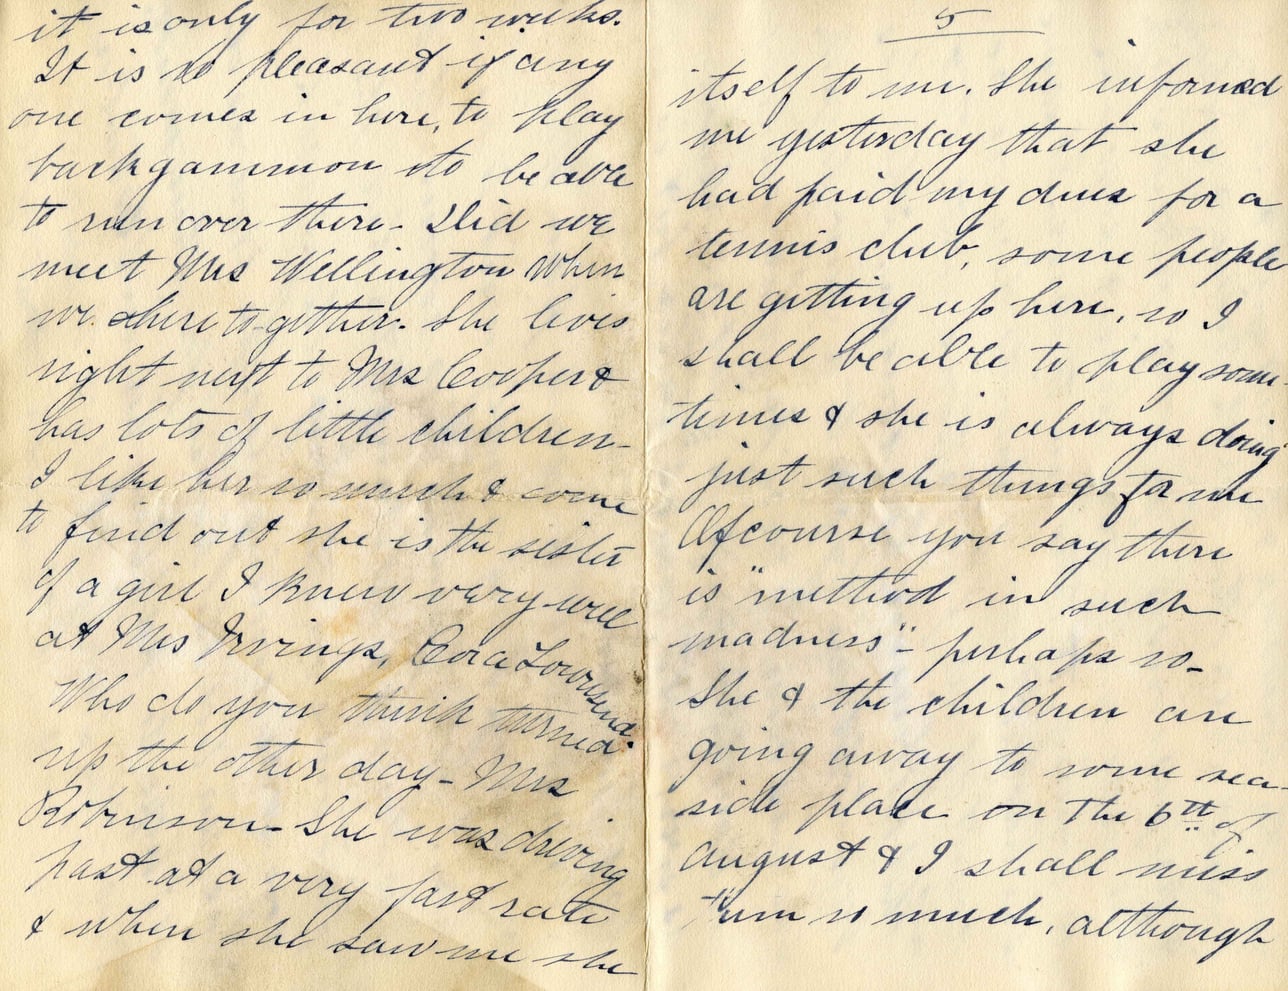 it is only for two weeks.
It is so pleasant if any
one comes in here, to play
backgammon &to be able
to run over there - Did we
meet Mrs Wellington when
we. where to-gether. She lives
right next to Mrs Cooper &
has lots of little children -
I like her so much & come
to find out she is the sister
of a girl I knew very well
at Mrs Irvings, Cora Townsend.
Who do you think turned
up the other day - Mrs
Robinson - She was driving
past at a very fast rate
& when she saw me she
5
itself to me. She informed
me yesterday that she
had paid my dues for a
tennis club, some people
are getting up here, so I
shall be able to play some-
times & she is always doing
just such things for me
Ofcourse you say there
is "method in such
madness" - perhaps so -
She & the children are
going away to some sea
side place on the 6th of
August & I shall miss
'em so much, although